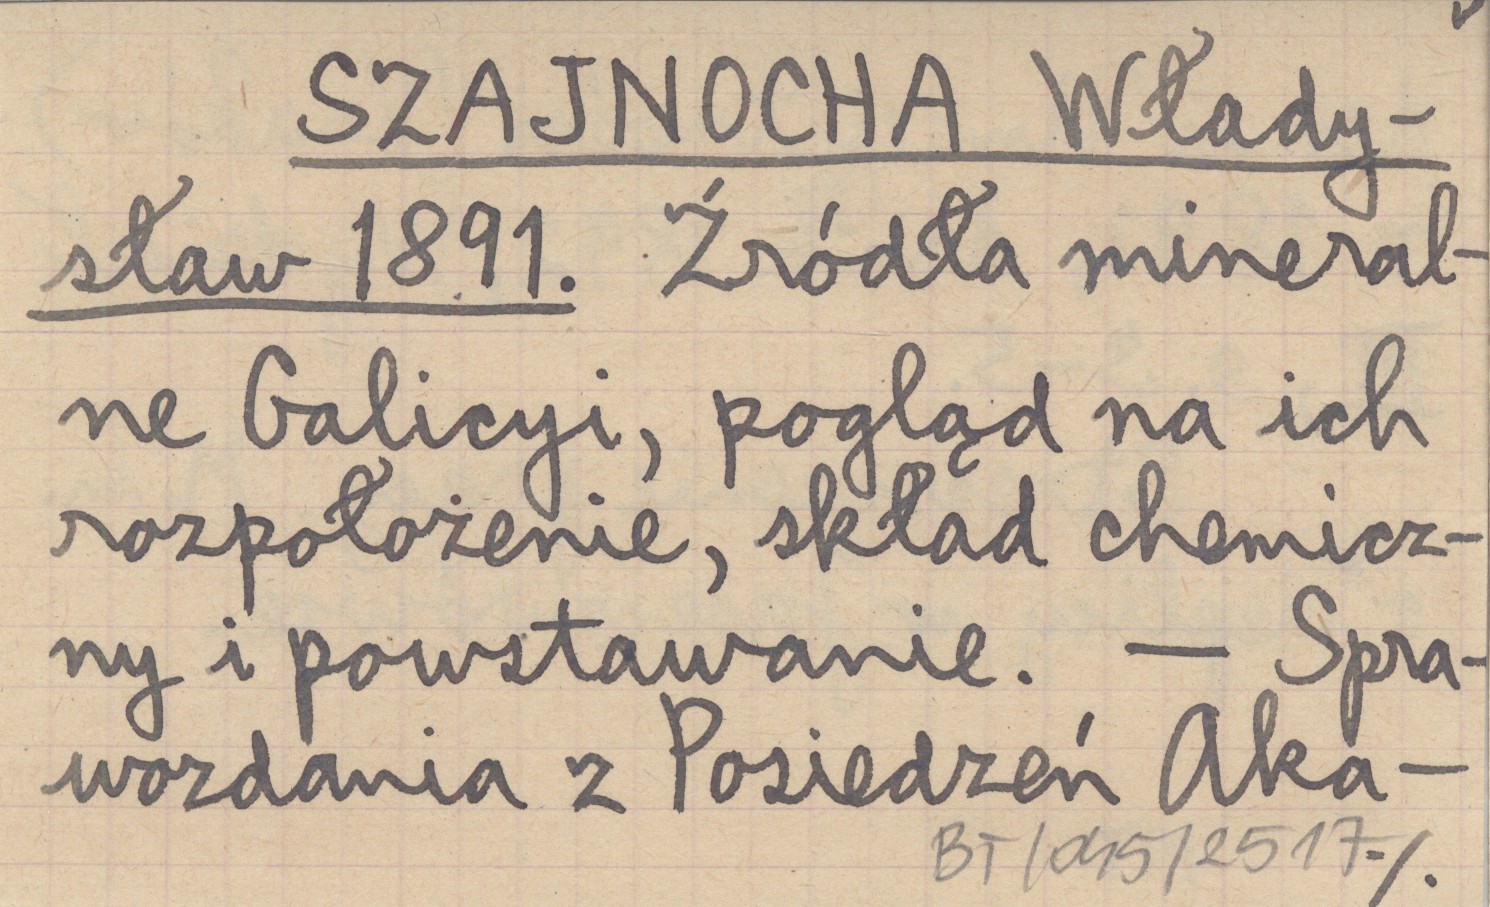 SZAJNOCHA Włady-
sław 1891. Źródła mineral-
ne Galicyi, pogląd na ich
rozpołożenie, skład chemicz-
ny i powstawanie. — Spra-
wozdania z Posiedzeń Aka-
BT/045/2517 ./.